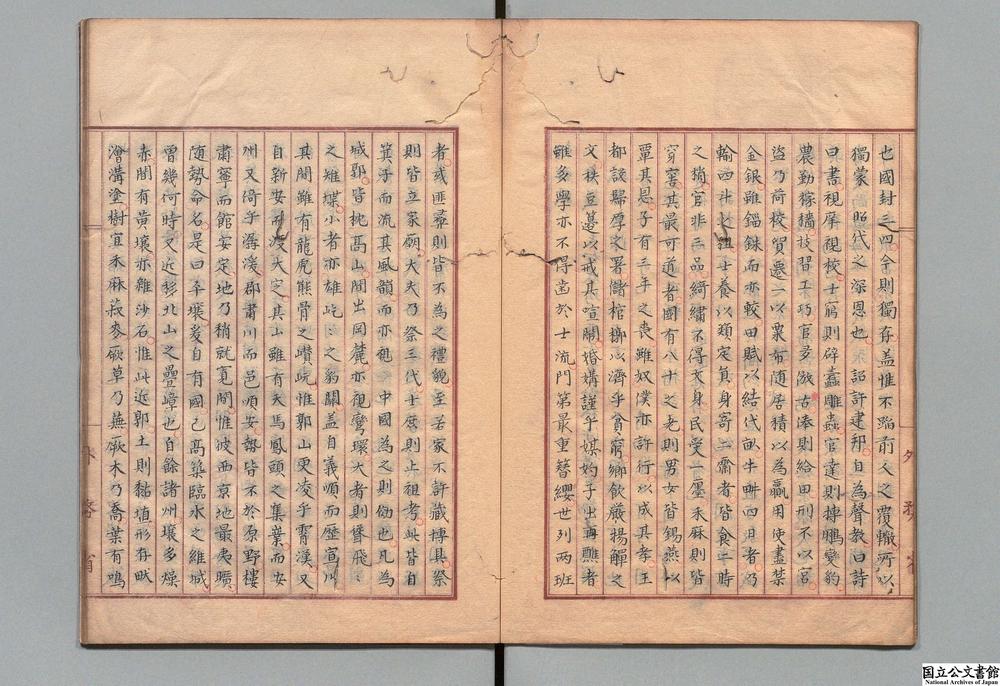 也國封三四今則獨存盖惟不蹈前人之覆轍所以
獨蒙昭代之深恩也詔許建邦自為聲教曰詩
曰書視庠視校士窮則辟蠹雕蟲官達則摶鵬變豹
農勤稼穡技習工巧官多倣古俸則給田刑不以宮
盜乃荷校貿遷一以粟布隨居積以為贏用使盡禁
金銀雖錙銖而亦較田賦以結代畝牛畊四日者乃
輸四斗之租士養以類定員身寄二齋者皆食二時
之稍官非三品綺繡不得文身民受一廛禾麻則皆
穿窖其最可道者國有八十之老則男女皆錫燕以
覃其恩子有三年之喪雖奴僕亦許行以成其孝王
都設歸厚之署儲棺槨以濟乎貧窮鄉飲嚴揚觶之
文秩豆籩以戒其喧鬧婚媾謹乎媒妁子出再醮者
雖多學亦不得齒於士流門第最重簪纓世列兩班
外務省
者或匪彝則皆不為之禮貌至若家不許藏博具祭
則皆立家廟大夫乃祭三代士庶則止祖考此皆自
箕子而流其風韻而亦覩中國為之則傚也凡為
城郭皆枕高山間出岡麓亦視彎環大者則聳飛〻
之雉堞小者亦雄屹〻之豹關盖自義順而歷宣川
其間雖有龍虎熊骨之巑岏惟郭山更凌乎霄漢又
自新安而渡大定其山雖有天馬鳳頭之集業而安
州又倚乎潺湲郡肅川而邑順安勢皆不於原野樓
肅寧而館安定地乃稍就寬閒惟彼西京地最夷曠
隨勢命名是曰平壤爰自有國已高築臨水之維城
曾幾何時又近移北山之疊嶂也自餘諸州壤多燥
赤間有黃壤亦雜沙石惟此近郭土則黏埴形存畎
澮溝塗樹宜禾麻菽麥厥草乃蕪厥木乃喬葉有鳴
外務省
国立公文書館
National Archives of Japan